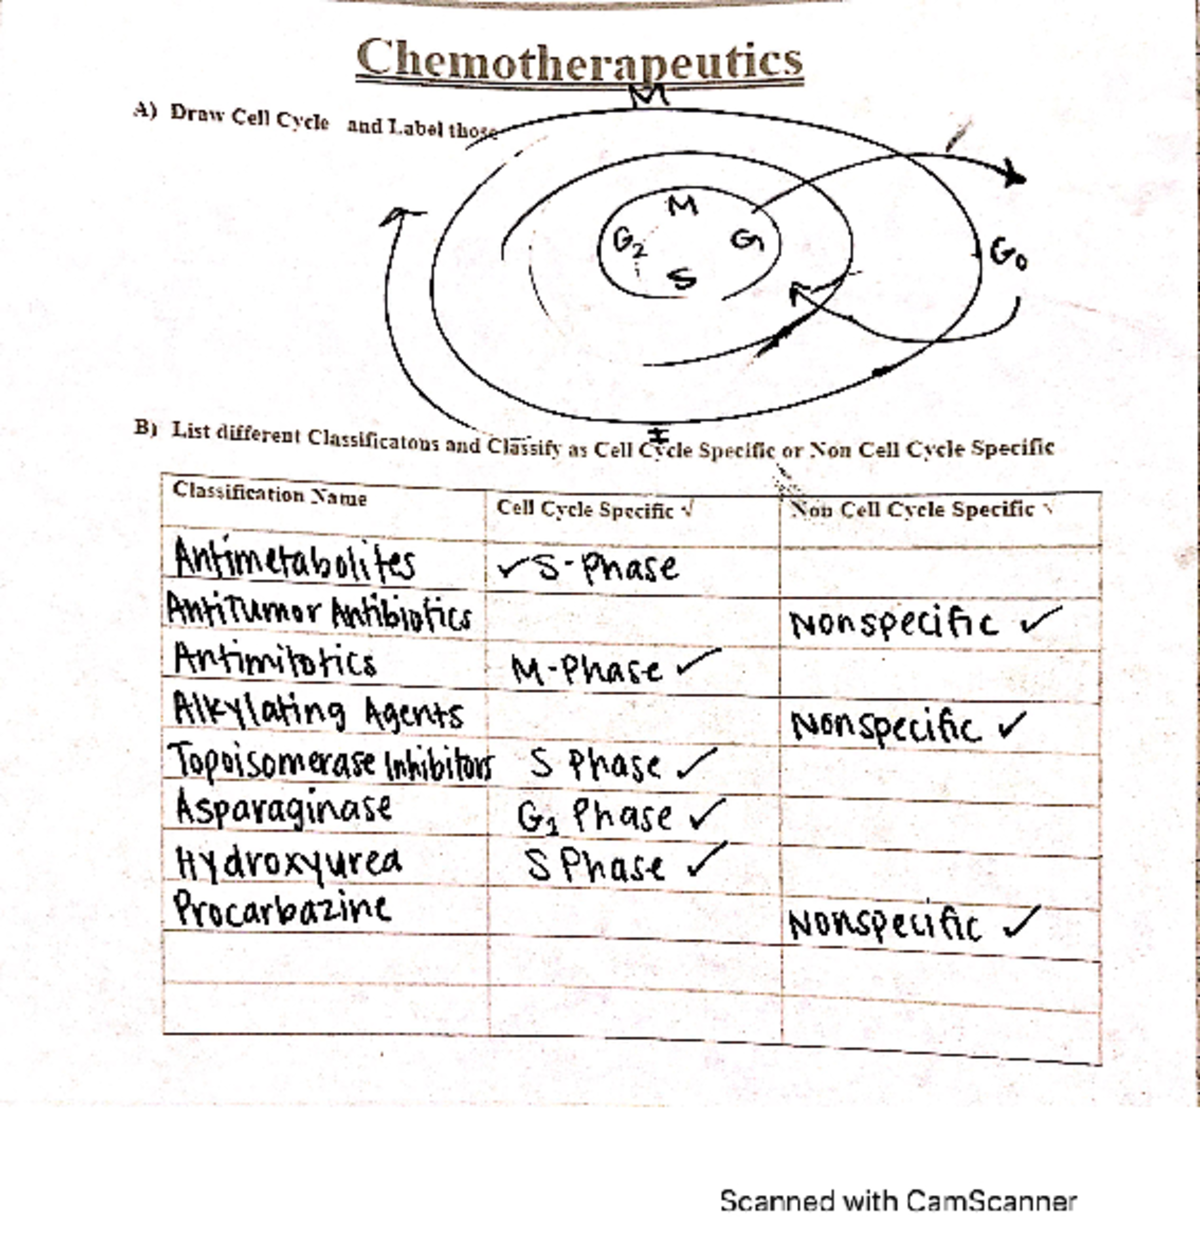 Chemotherapeutics
A) Draw Cell Cycle and Label those
M
M
G2 G1
S
G0
I
B) List different Classificatons and Classify as Cell Cycle Specific or Non Cell Cycle Specific
Classification Name Cell Cycle Specific √ Non Cell Cycle Specific √
Antimetabolites ✓S-Phase
AntiTumor Antibiotics Nonspecific ✓
Antimitotics M-Phase ✓
Alkylating Agents Nonspecific ✓
Topoisomerase Inhibitors S Phase ✓
Asparaginase G1 Phase ✓
Hydroxyurea S Phase ✓
Procarbazine Nonspecific ✓
Scanned with CamScanner